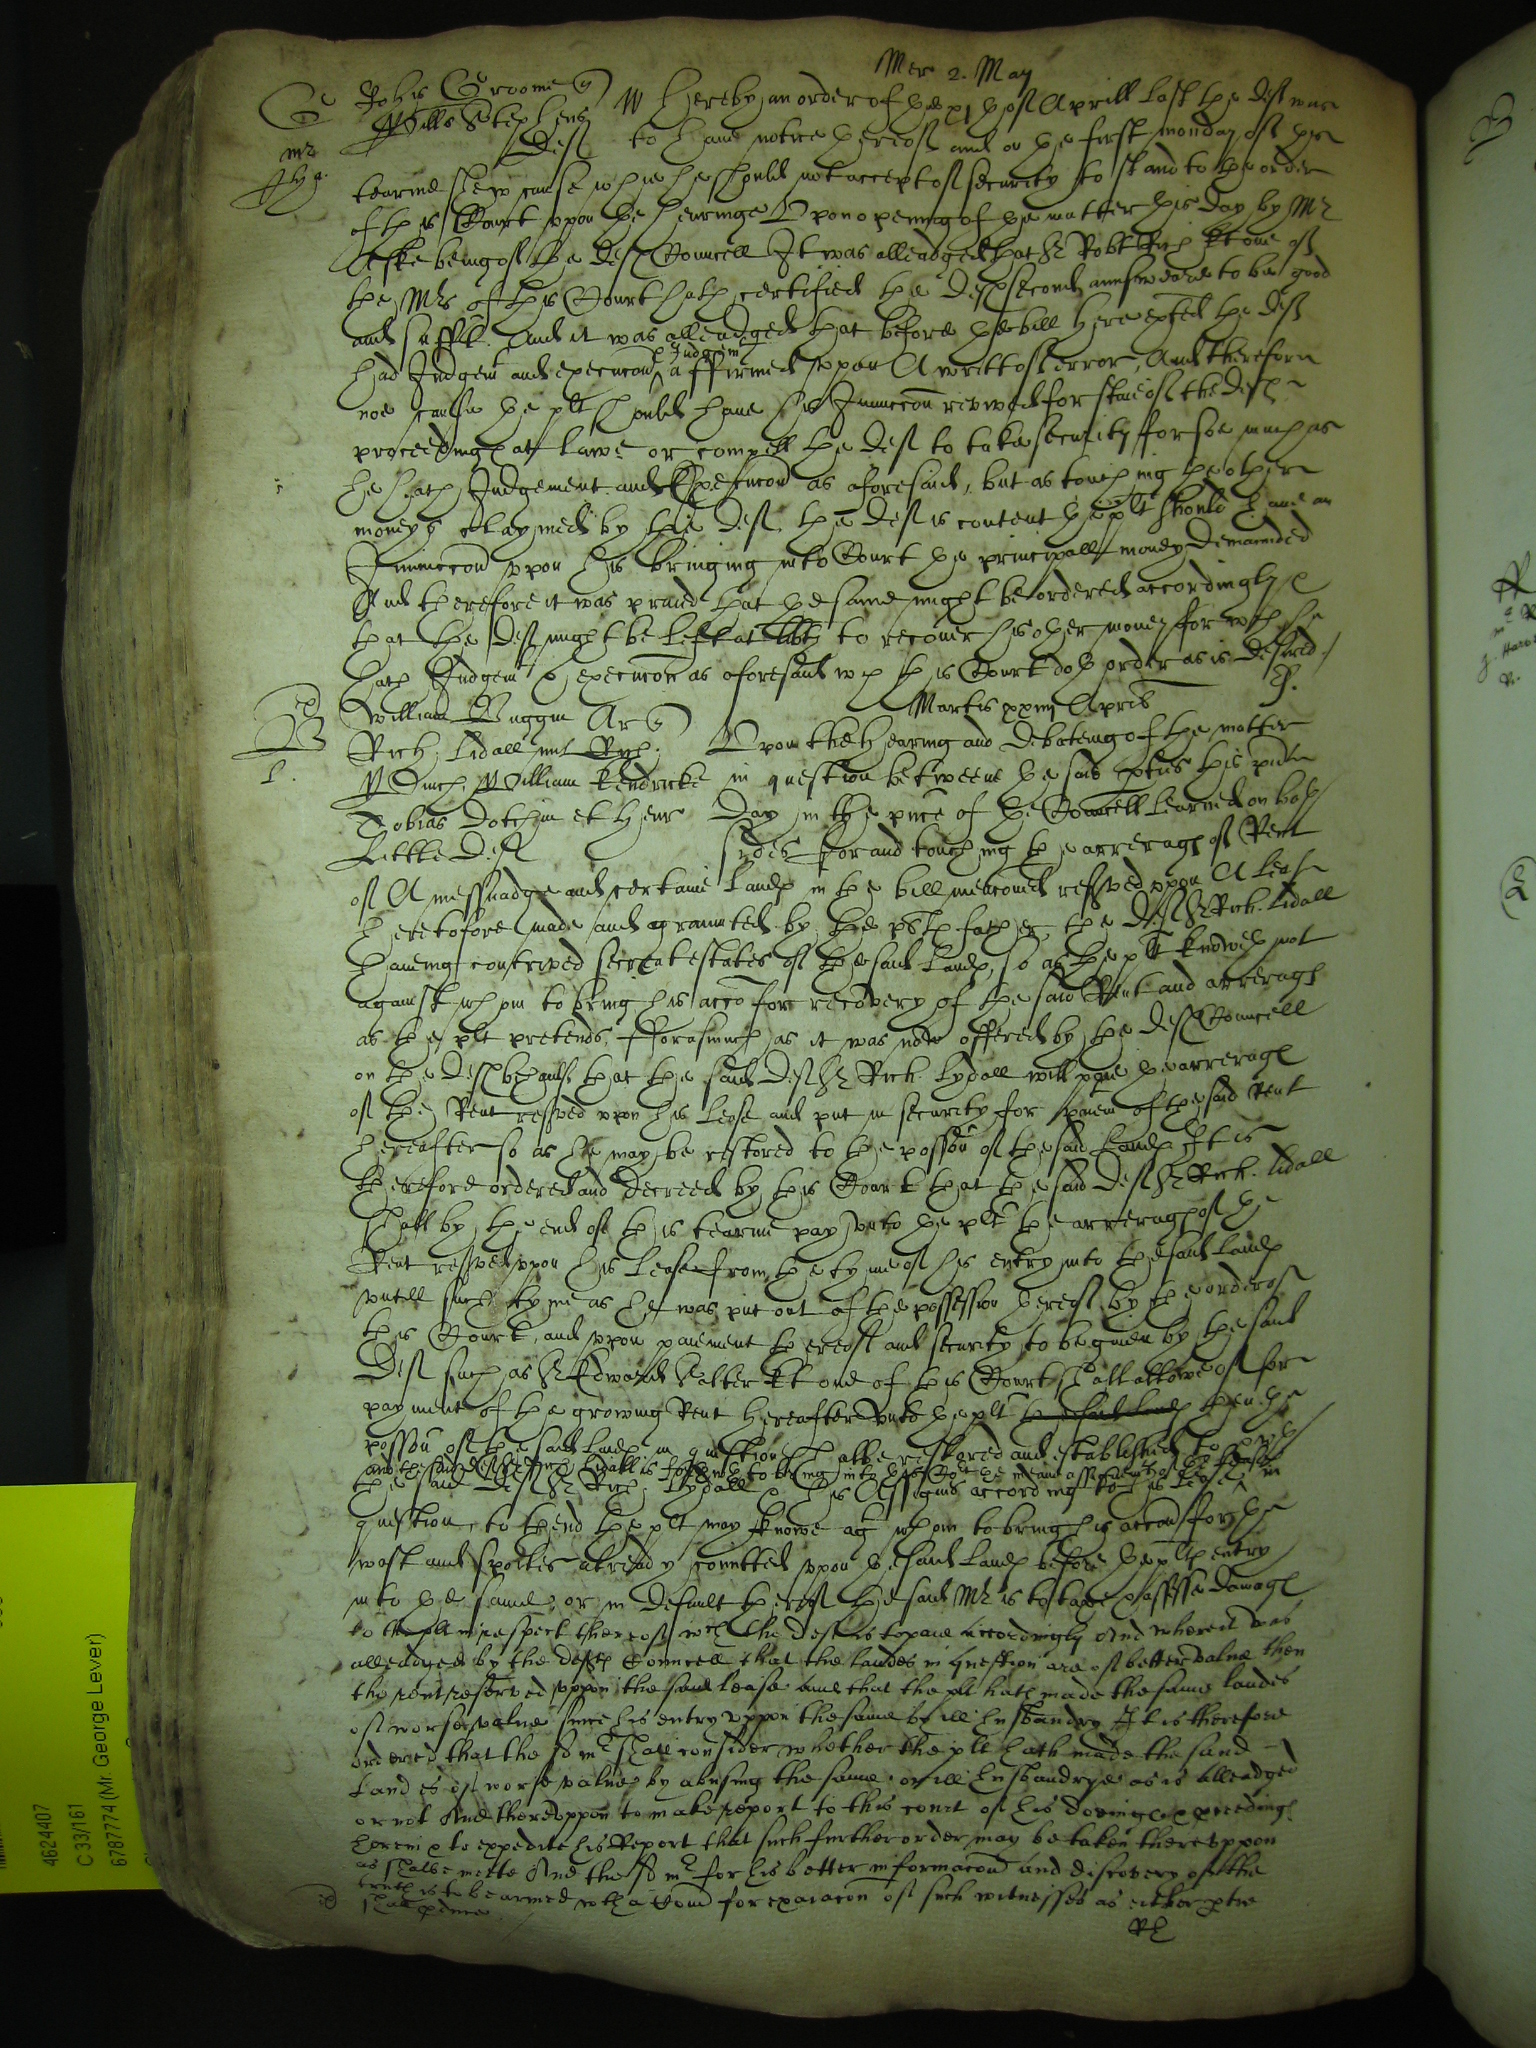 Mer 2. May
Robtus Groome q
Willm Stephens
Deft
Whereby an order of the xj th of Aprill last the deft was
to have notice thereof and on the first monday of this
tearme shew cause whie he should not accept of security to stand to the order
of this Court uppon the hearinge Upon opening of the matter this day by Mr
being of the defts Councell It was alleadged that Sr Robt Rich kt one of
the Mrs of this Court hath certified the defts second aunsweare to be good
and suffic. And it was alleadged that before the bill here exhited the deft
had Judgemt and execucon affirmed uppon A writt of error, And therefore
p Judgemt
noe cause the plt should have his Iniunccon revived for staie of the defts
proceedings att lawe or compell the deft to take security for soe much as
he hath Judgement and Execucon as aforesaid, but as touching the other
moneys claymed by the deft, the deft is content the plt should have an
Iniunccon uppon his bringing into Court the principall money demaunded
And therefore it was praied that the same might be ordered accordingly &
that the deft might be left at libty to recover his other money for wch he
hath Judgemt & execucon as aforesaid wch this Court doth order as is desired.
Martis xxiiij Aprilis
William Buggin Ar q
Rich: Lidall mil Rich:
Winch, William Kendricke
Tobias Dotchin et Henr
Little Deft
Upon the Hearing and Debateing of the matter
in question betweene the said pties this pnte
Day in the pnce of the Councell Learned on both
sides for and touching the arrerags of Rent
of A messuadge and certaine Lands in the bill menconed resved uppon A lease
heretofore made and graunted by the plts father, the deft Sr Rich. Lidall
having contrived secreat estates of the said Lands, so as the plt knoweth not
against whom to bring his accon for recovery of the said Rent and arrerags
as the plt pretends, fforasmuch as it was now offered by the defts Councell
on the defts behaulf that the said deft Sr Rich. Lydall will paie the arrerags
of the Rent resved upon his Lease and put in security for paiemt of the said Rent
hereafter so as he may be restored to the possion of the said Lands It is
therefore ordered and decreed by this Court that the said deft Sr Rich. Lidall
shall by the end of this tearme pay unto the plt the arrerags of the
Rent resved uppon his Lease from the tyme of his entry into the said Lands
untill such tyme as he was put out of the possession thereof by the order of
this Court, and uppon paiement thereof and security to be given by the said
Deft such as Sr Edward Salter kt one of this Court shall allowe of for
payment of the growing Rent hereafter unto the plt the said Lands then the
possion of the said Lands in question shalbe restored and established to
and the said deft Sr Rich: Lidall is to bring into this Court the meane assignemts of the Lease
the said deft Sr Rich: Lydall & his Assignes according to his Lease in
question, to thend the plt may knowe agt whom to bring his accon for the
wast and spoiles already comitted uppon the said Lands before the plts entry
into the same, or in default thereof the said Mr is to taxe & assesse damags
to the plt in respect thereof wch the deft is to paie accordingly And where it was
alleadged by the defts Councell that the landes in question are of better value then
the rent reserved uppon the said lease and that the plt hath made the same landes
of worse value since his entry uppon the same by ill husbandry It is therefore
ordered that the sd mr shall consider whether the plt hath made the said
Landes of worse value by abusing the same or ill husbandrye as is alleadged
or not And thereuppon to make report to this court of his doeings & proceedings
herein & to expedite his Report that such further order may be taken thereuppon
as shalbe meete And the sd mr for his better informacon and discovery of the
truth is to be armed wth a Com for exaiacon of such witnesses as either ptie
shall pduce
4624407
C 33/161
6787774 (Mr. George Lever)